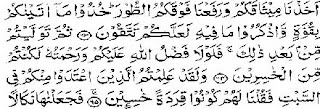 أَخَذْنَا مِيثَاقَكُمْ وَرَفَعْنَا فَوْقَكُمُ الطُّورَ خُذُوا مَا آتَيْنَٰكُمْ
بِقُوَّةٍ وَاذْكُرُوا مَا فِيهِ لَعَلَّكُمْ تَتَّقُونَ ۝٦٣ ثُمَّ تَوَلَّيْتُمْ
مِنْ بَعْدِ ذَٰلِكَ ۖ فَلَوْلَا فَضْلُ اللَّهِ عَلَيْكُمْ وَرَحْمَتُهُ لَكُنْتُمْ
مِنَ الْخَٰسِرِينَ ۝٦٤ وَلَقَدْ عَلِمْتُمُ الَّذِينَ اعْتَدَوْا مِنْكُمْ فِي
السَّبْتِ فَقُلْنَا لَهُمْ كُونُوا قِرَدَةً خَٰسِئِينَ ۝٦٥ فَجَعَلْنَٰهَا نَكَالًا